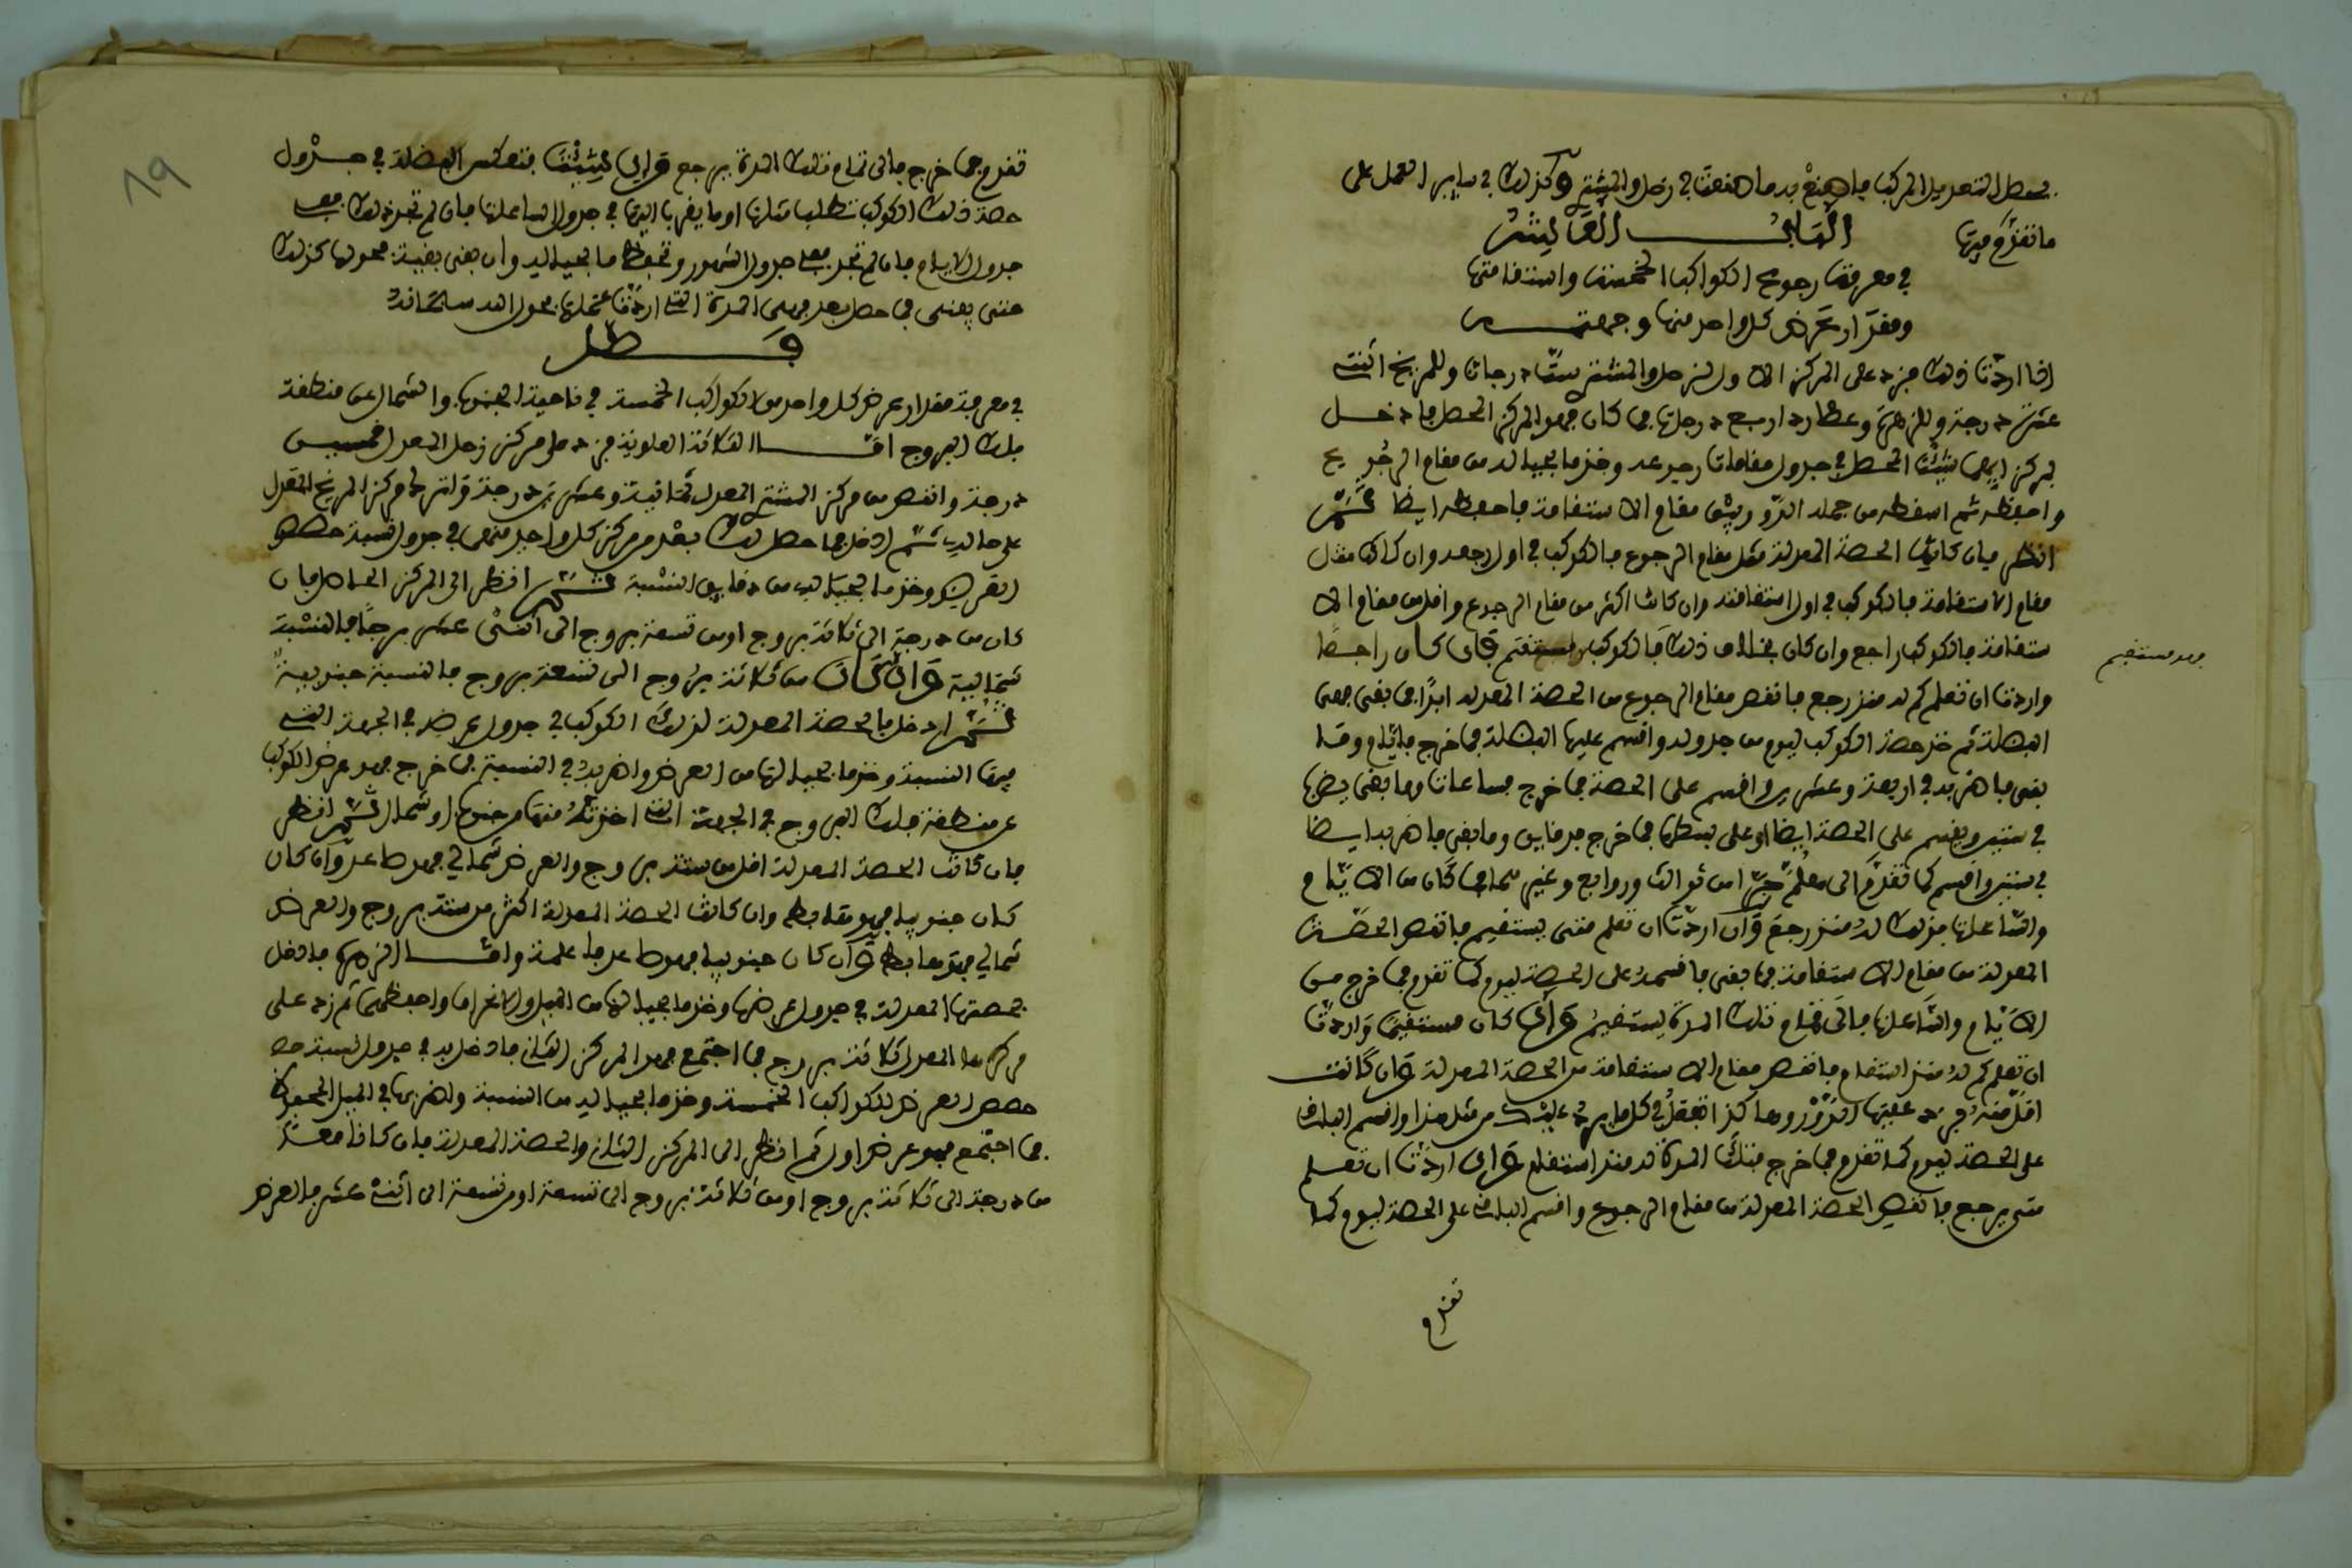 يحصل التعديل المركب فاصنع به ما صنعت في زحل والمشتري وكذلك في ساير العمل على
ما تقدم فيها
الباب العاشر
في معرفة رجوع الكواكب الخمسة واستقامتها
ومقدار عرض كل واحد منها وجهته
اذا اردت ذلك فزد على المركز الاول لزحل والمشتري ست درجات وللمريخ اثنتي
عشرة درجة وللزهرة وعطارد اربع درجات فما كان فهو المركز المحصل فادخل
المحصل في جدول مقامات رجوعه وخذ ما بحياله من مقام الرجوع
واحفظه ثم اسقطه من جملة الدور يبق مقام الاستقامة فاحفظه ايضا ثم
انظر فان كانت الحصة المعدلة مثل مقام الرجوع فالكوكب في اول رجوعه وان كانت مثل
مقام الاستقامة فالكوكب في اول استقامته وان كانت اكثر من مقام الرجوع واقل من مقام الا
ستقامة فالكوكب راجع وان كان بخلاف ذلك فالكوكب مستقيم فان كان راجعا
فهو مستقيم
واردت ان تعلم كم له منذ رجع فانقص مقام الرجوع من الحصة المعدلة ابدا فما بقى فهى
الفضلة ثم خذ حصة الكوكب ليوم من جدوله واقسم عليها الفضلة فما خرج فايام وما
بقى فاضربه في اربعة وعشرين واقسم على الحصة فما خرج فساعات وما بقى يضرب
في ستين ويقسم على الحصة ايضا فما خرج فدقايق وما بقى فاضربه ايضا
في ستين واقسم كما تقدم الى ثوالث وروابع وغير فما كان من الايام
والساعات فذلك له منذ رجع وان اردت ان تعلم متى يستقيم فانقص الحصة
المعدلة من مقام الاستقامة فما بقى فاقسمه على الحصة ليوم كما تقدم فما خرج من
الايام والساعات فالى تمام تلك المدة يستقيم وان كان مستقيما واردت
ان تعلم كم له منذ استقام فانقص مقام الاستقامة من الحصة المعدلة وان كانت
اقل منه فزد عليها الدور وهاكذا تفعل في كل ما يرد عليك من مثل هذا واقسم الباقى
على الحصة ليوم كما تقدم فما خرج فتلك المدة له منذ استقام وان اردت ان تعلم
متى يرجع فانقص الحصة المعدلة من مقام الرجوع واقسم الباقى على الحصة ليوم كما
تقدم
٨٩
تقدم فما خرج فالى تمام تلك المدة يرجع وان شئت فتعكس الفضلة في جدول
حصة ذلك الكوكب تطلب مثلها او ما يقرب اليها في جدول الساعات فان لم تجد ذلك ففى
جدول الايام فان لم تجد ففى جدول الشهور وتحفظ ما بحياله وان بقى بقية فحولها كذلك
حتى يفنى فما حصل بعد فهى المدة التى اردت عملها بحول الله سبحانه
فصل
في معرفة مقدار عرض كل واحد من الكواكب الخمسة في ناحية الجنوب والشمال عن منطقة
فلك البروج اما الثلاثة العلوية فزد على مركز زحل المعدل خمسين
درجة وانقص من مركز المشترى المعدل ثمانية وعشرين درجة واترك مركز المريخ المعدل
على حاله ثم ادخل بما حصل لك بعد من مركز كل واحد منهم في جدول نسبة حصص
العرض وخذ ما بحياله من دقايق النسبة ثم انظر الى المركز الحاصل فان
كان من درجة الى ثلاثة بروج او من تسعة بروج الى اثنى عشر برجا فالنسبة
شمالية وان كان من ثلاثة بروج الى تسعة بروج فالنسبة جنوبية
ثم ادخل بالحصة المعدلة لذلك الكوكب في جدول عرضه في الجهة التى
فيها النسبة وخذ ما بحيالها من العرض واضربه في النسبة فما خرج فهو عرض الكوكب
عن منطقة فلك البروج في الجهة التى اخذته منها من جنوب او شمال ثم انظر
فان كانت الحصة المعدلة اقل من ستة بروج والعرض شمالي فهو صاعد وان كان
كان جنوبيا فهو هابط وان كانت الحصة المعدلة اكثر من ستة بروج والعرض
شمالي فهو هابط وان كان جنوبيا فهو صاعد واما الزهرة فادخل
بحصتها المعدلة في جدول عرضها وخذ ما بحيالها من الميل والانحراف واحفظهما ثم زد على
مركزها المعدل ثلاثة بروج فما اجتمع فهو المركز الثانى فادخل به في جدول نسبة
حصص العرض للكواكب الخمسة وخذ ما بحياله من النسبة واضربها في الميل المحفوظ
فما اجتمع فهو عرض اول ثم انظر الى المركز الثانى والحصة المعدلة فان كانا معا
من درجة الى ثلاثة بروج او من ثلاثة بروج الى تسعة او من تسعة الى اثنى عشر فالعرض